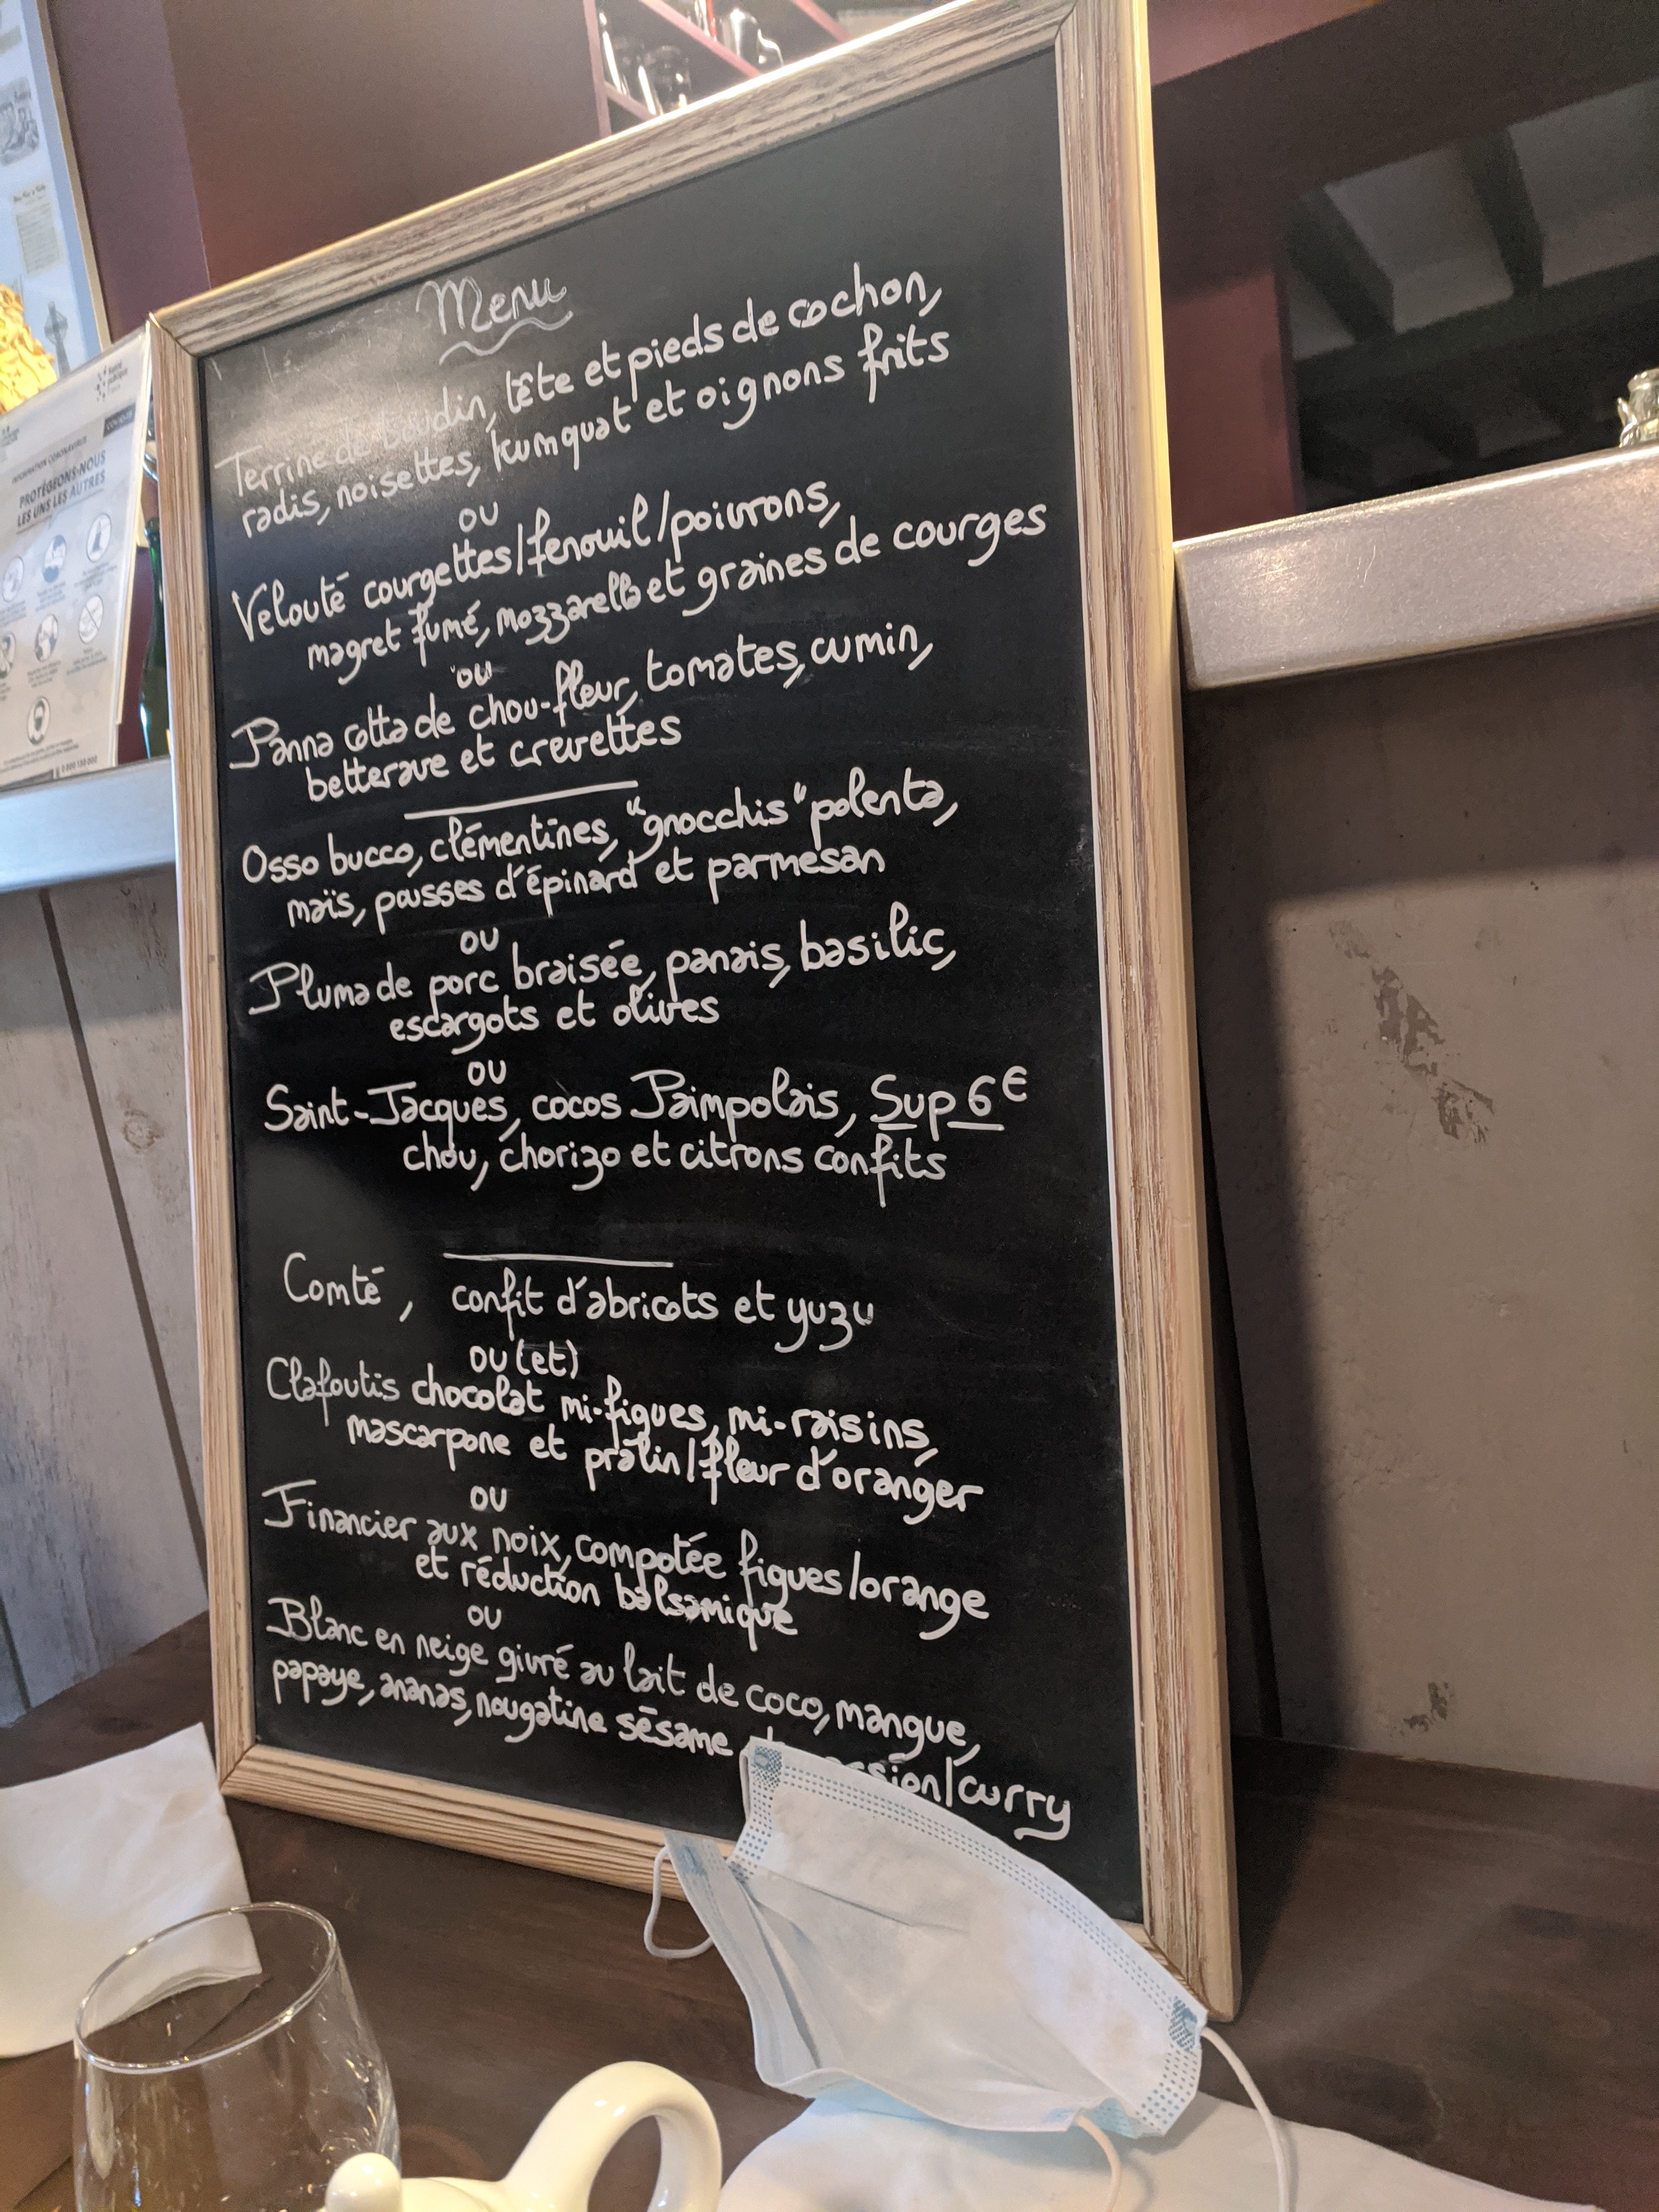 Menu
Terrine de boudin, tête et pieds de cochon,
radis, noisettes, kumquat et oignons frits
ou
Velouté courgettes/fenouil/poivrons,
magret fumé, mozzarella et graines de courges
ou
Panna cotta de chou-fleur, tomates, cumin,
betterave et crevettes
Osso bucco, clémentines, "gnocchis" polenta,
maïs, pousses d'épinard et parmesan
ou
Pluma de porc braisée, panais, basilic,
escargots et olives
ou
Saint-Jacques, cocos Paimpolais, Sup 6€
chou, chorizo et citrons confits
Comté, confit d'abricots et yuzu
ou (et)
Clafoutis chocolat mi-figues, mi-raisins,
mascarpone et pralin/fleur d'oranger
ou
Financier aux noix, compotée figues/orange
et réduction balsamique
ou
Blanc en neige givré au lait de coco, mangue,
papaye, ananas, nougatine sésame
/curry
INFORMATION CORONAVIRUS
COVID-19
PROTÉGEONS-NOUS
LES UNS LES AUTRES
0 800 130 000